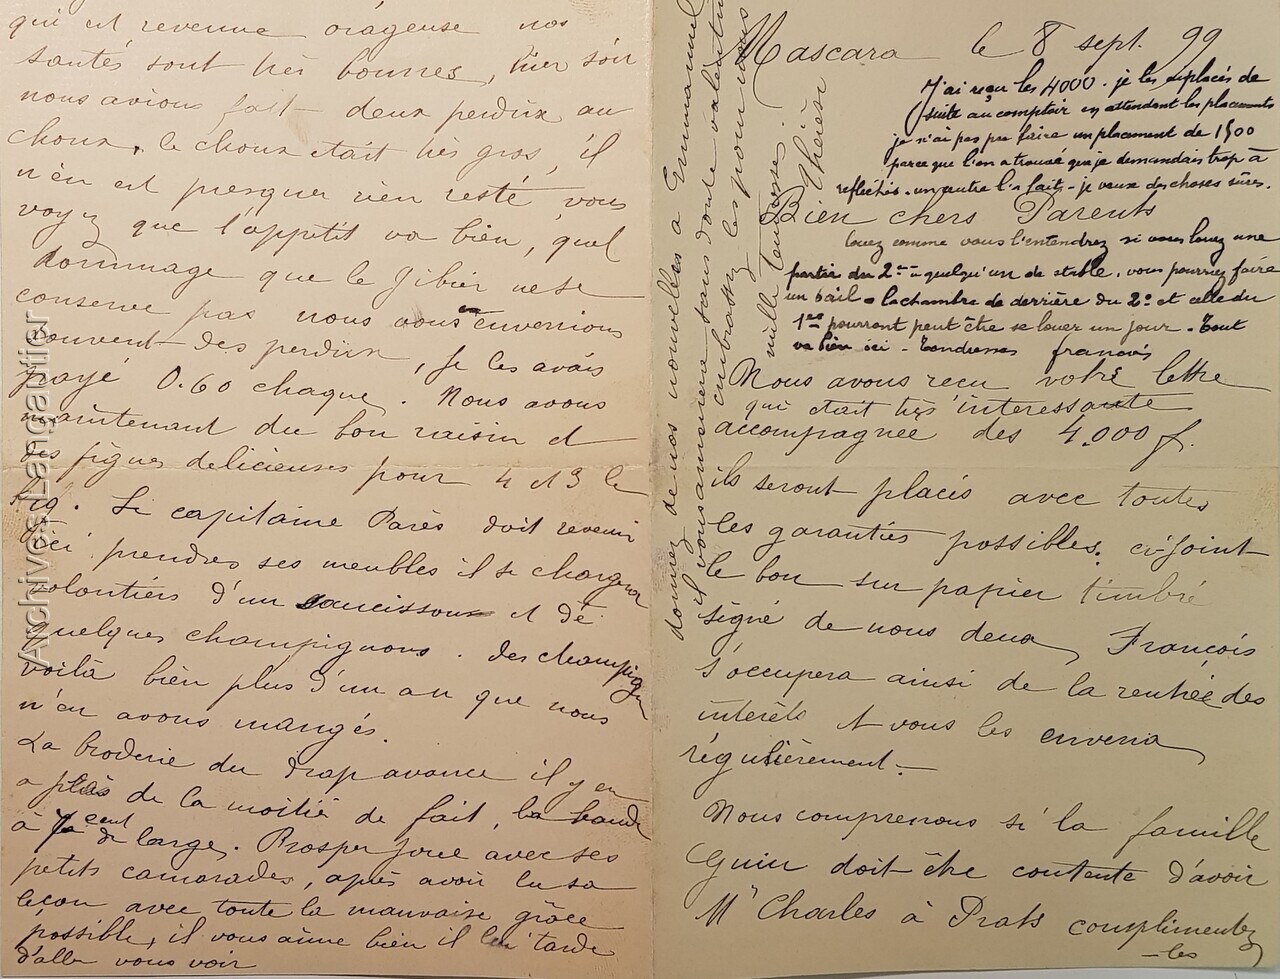 Mascara le 8 sept. 99
J'ai reçu les 4000. je les ai placés de
suite au comptoir en attendant les placements
je n'ai pas pu faire un placement de 1500
parce que l'on a trouvé que je demandais trop à
refléchir. un autre l'a fait - je veux des choses sûres.
Bien chers Parents
Louez comme vous l'entendrez si vous louez une
partie du 2e à quelqu'un de stable, vous pourrez faire
un bail - la chambre de derrière du 2e et celle du
1er pourront peut être se louer un jour - Tout
va bien ici - Tendresses françois
Nous avons reçu votre lettre
qui était très interessante
accompagnée des 4.000 f.
ils seront placés avec toutes
les garanties possibles. ci-joint
le bon sur papier timbré
signé de nous deux, François
s'occupera ainsi de la rentrée des
intérêts et vous les enverra
régulièrement. -
Nous comprenons si la famille
Guin doit être contente d'avoir
Mr Charles à Prats complimentez
-les
qui est revenue orageuse nos
santés sont très bonnes, hier soir
nous avions fait deux perdrix au
choux, le choux était très gros, il
n'en est presque rien resté, vous
voyez que l'appetit va bien, quel
dommage que le gibier ne se
conserve pas nous vous en enverrions
souvent des perdrix, je les avais
payé 0.60 chaque. Nous avons
maintenant du bon raisin et
des figues delicieuses pour 4 et 3 le
kg. Le capitaine Parès doit revenir
ici prendres ses meubles il se chargera
volontiers d'un saucisson et de
quelques champignons. des champignons
voilà bien plus d'un an que nous
n'en avons mangés.
La broderie du drap avance il y en
a plus de la moitié de fait, la bande
à cent de large. Prosper joue avec ses
petits camarades, après avoir lu sa
leçon avec toute la mauvaise grâce
possible, il vous aime bien il lui tarde
d'aller vous voir
donnez de nos nouvelles à Emmanuel
il vous amusera sans doute Valentin
embrassez les pour nous
mille tendresses.
Thérèse
Archives Langautier